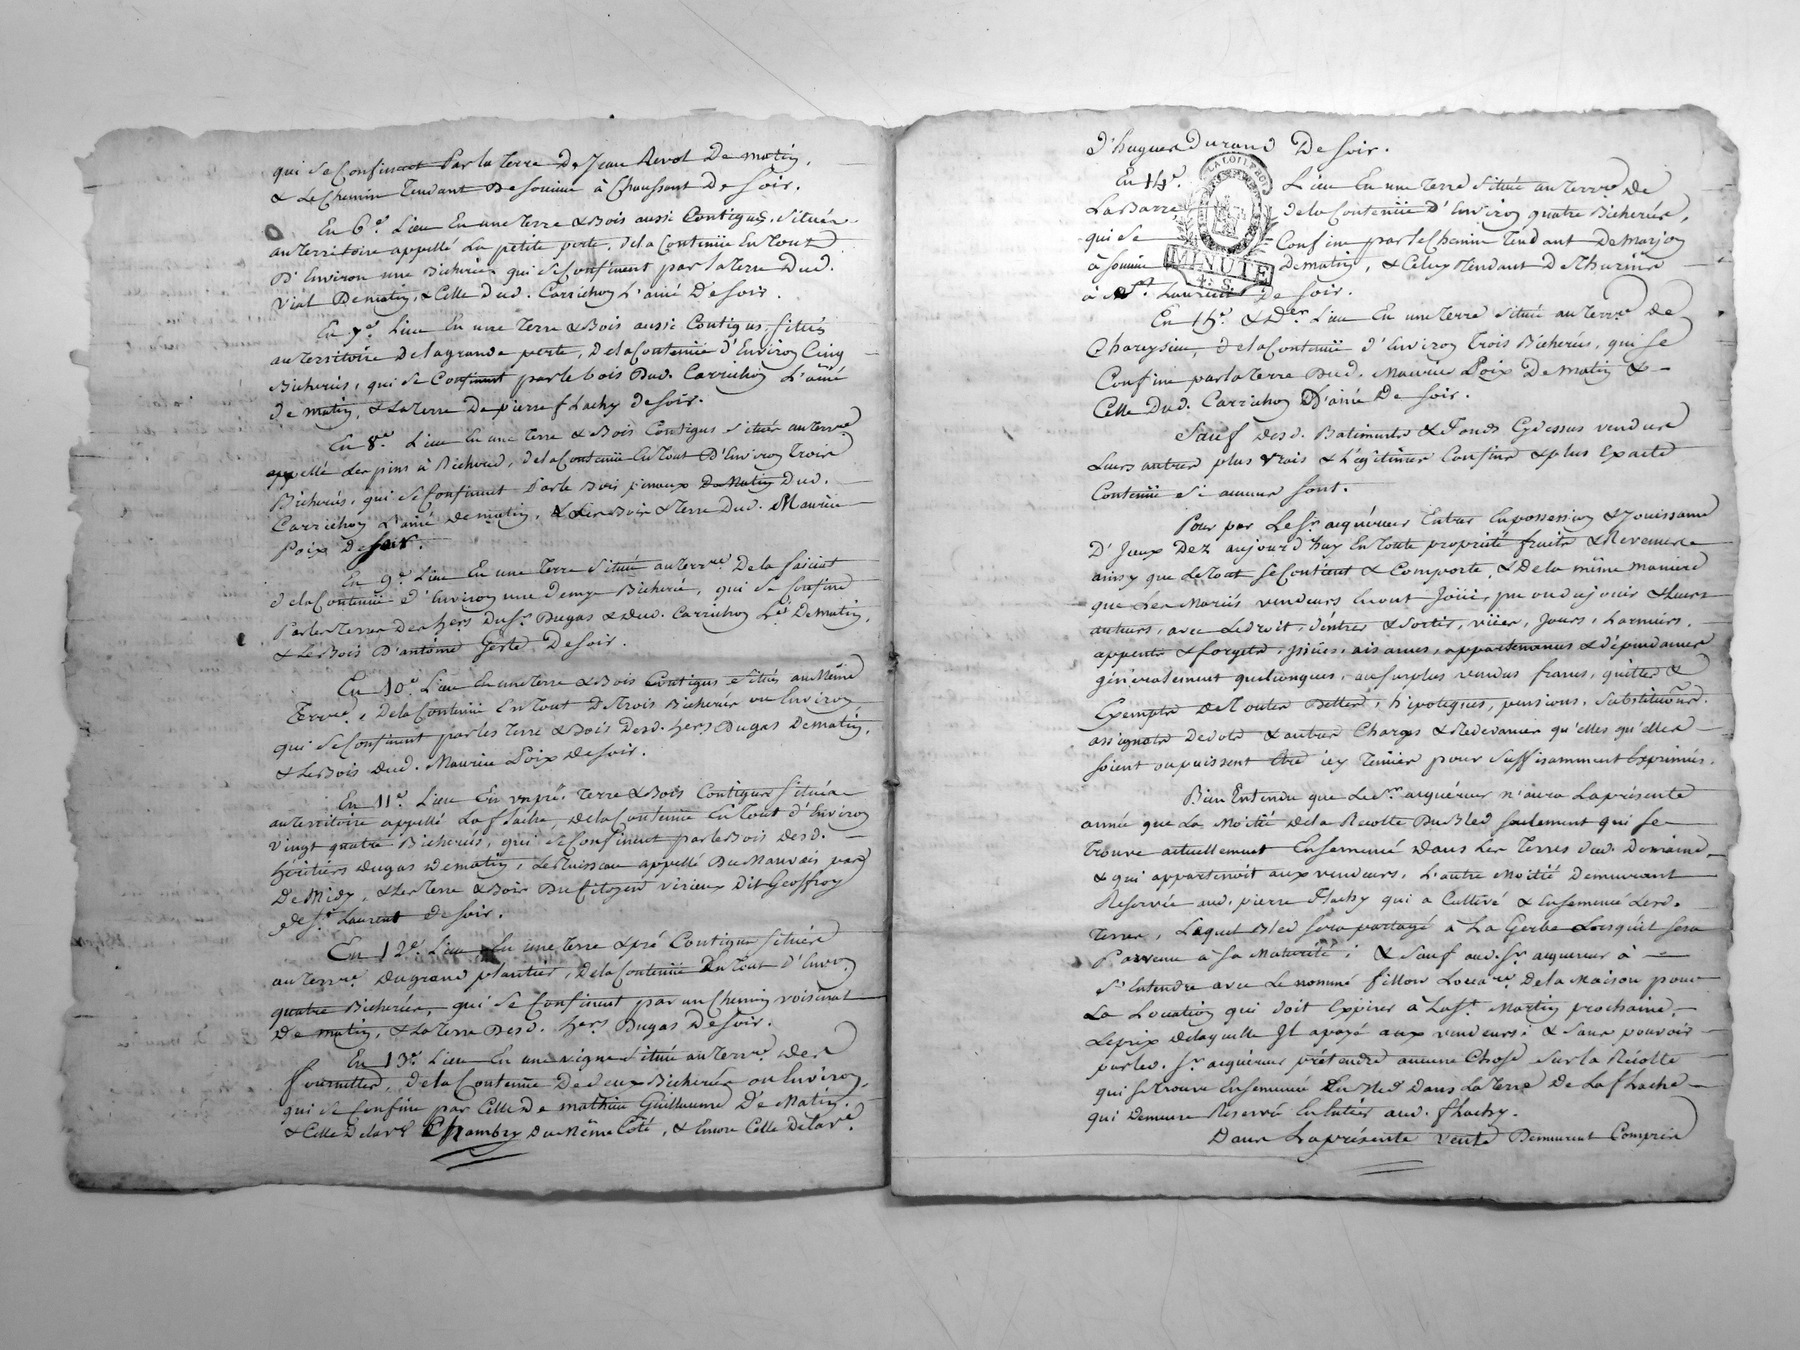 qui se Confinent Par la terre De Jean Revol De matin,
& Le Chemin Tendant De soucieu à Chaussant De soir.
En 6e. Lieu En une terre & Bois aussi Contigus, situés
au territoire appellé La petite perte, de la Contenüe En tout
D'Environ une Bicherée qui se Confinent par la terre Dud.
Vial De matin, & Celle dud. Carrichon L'ainé De soir.
En 7e. Lieu En une terre & Bois aussi Contigus, situés
au territoire De la grande perte, De la Contenüe d'Environ Cinq
Bicherées, qui se Confinent par le bois Dud. Carrichon L'ainé
de matin, & La terre De pierre flachy de soir.
En 8e. Lieu En une terre & Bois Contigus situés au terr.re
appellé des pins à Richoud, de la Contenüe En tout D'Environ trois
Bicherées, qui se Confinent Par le Bois Dud.
Carrichon L'ainé De matin, & Les Bois & terre Dud. Maurice
Poix De soir.
En 9e. Lieu En une terre située au terr.re De la
de la Contenüe d'Environ une demye Bicherée, qui se Confine
Par les terres Des hers Du Sr. Dugas & Dud. Carrichon De matin,
& Le Bois D'antoine De soir.
En 10e. Lieu En une terre & Bois Contigus situés au Même
Terr.re, de la Contenüe En tout De trois Bicherées ou Environ
qui se Confinent par les terre & Bois Desd. hers Dugas De matin,
& Le Bois Dud. Maurice Poix De soir.
En 11e. Lieu En un pré, terre & Bois Contigus situés
au territoire appellé La flache, de la Contenüe En tout d'Environ
vingt quatre Bicherées, qui se Confinent par le Bois Desd.
héritiers Dugas De matin, Le Ruisseau appellé Du Mauvais pas
De Midy, & les terre & Bois Du Citoyen virieux Dit Geoffroy
de St. Laurent de soir.
En 12e. Lieu En une terre & pré Contigus situés
au terr.re du grand plantier, De la Contenüe En tout d'Envir.
quatre Bicherées, qui se Confinent par un Chemin voisinal
De matin, & La terre Desd. hers. Dugas De soir.
En 13e. Lieu En une vigne située au terr.re des
de la Contenüe De deux Bicherées ou Environ,
qui se Confine par Celle De mathieu Guillaume De Matin,
& Celle De la ve. Chambry Du Même Coté, & Encore Celle De la ve.
d'hugues Durand De soir.
En 14e. Lieu En une terre située au terr.re de
La Barre de la Contenüe d'Environ quatre Bicherées,
qui se Confine par le Chemin tendant De
à soucieu De matin, & Celuy tendant De thurins
à St. Laurent De soir.
LA LOI LE ROI
MINUTE
En 15e. & Der. Lieu En une terre située au terr.re de
Chareysieu, de la Contenüe d'Environ trois Bicherées, qui se
Confine par la terre Dud. Maurice Poix De Matin &
Celle Dud. Carrichon L'ainé De soir.
Sauf desd. Batiments & fonds Cy dessus vendus
Leurs autres plus vrais & Légitimes Confins & plus Exacte
Contenüe si aucuns sont.
Pour par Le Sr. acquéreur Entrer En possession & Jouissance
D'Jceux Dez aujourd'huy En toute propriété fruits & Revenus
ainsy que Le tout se Contient & Comporte, & De la même manière
que Les Mariés vendeurs En ont Joüi, pu ou du joüir & Leurs
auteurs, avec Ledroit d'entrer & sortir, vües, Jours,
appents & forgets, aisances, appartenances & dépendances
généralement quelconques, au surplus vendus francs, quittes &
Exempts De toutes Dettes, hipoteques, pensions, substitutions,
assignats De dots & autres Charges & Redevances qu'elles qu'elles
soient ou puissent être icy tenües pour suffisamment Exprimées.
Bien Entendu que Le Sr. acquéreur n'aura La présente
année que La Moitié de la Recolte Du Bled seulement qui se
trouve actuellement Ensemencé Dans Les terres dud. Domaine
& qui appartenoit aux vendeurs, L'autre Moitié Demeurant
Reservée aud. pierre Flachy qui a Cultivé & Ensemencé Lesd.
terres, Lequel Bled sera partagé à La Gerbe Lorsqu'il sera
Parvenu à sa Maturité; & Sauf aud. Sr. acquereur à
s'Entendre avec Le nommé fillon Locat.re De la Maison pour
La Location qui doit Expirer à La St. Martin prochaine,
Le prix de laquelle Jl a payé aux vendeurs; & sans pouvoir
par led. Sr. acquéreur prétendre aucune Chose sur la Récolte
qui se trouve Ensemencée En Bled Dans La terre De La flache
qui demeure Reservée En Entier aud. flachy.
Dans La présente vente Demeurent Compris